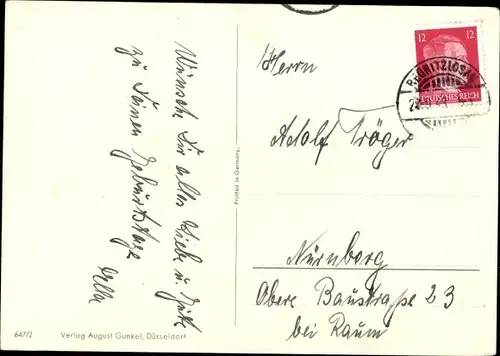 Wünsche Dir alles Liebe u. Gute
zu Deinem Geburtstage
Ella
647/2
Verlag August Gunkel, Düsseldorf
Printed in Germany.
12 12
DEUTSCHES REICH
Herrn
Adolf Träger
Nürnberg
Obere Baustraße 23
bei Raum